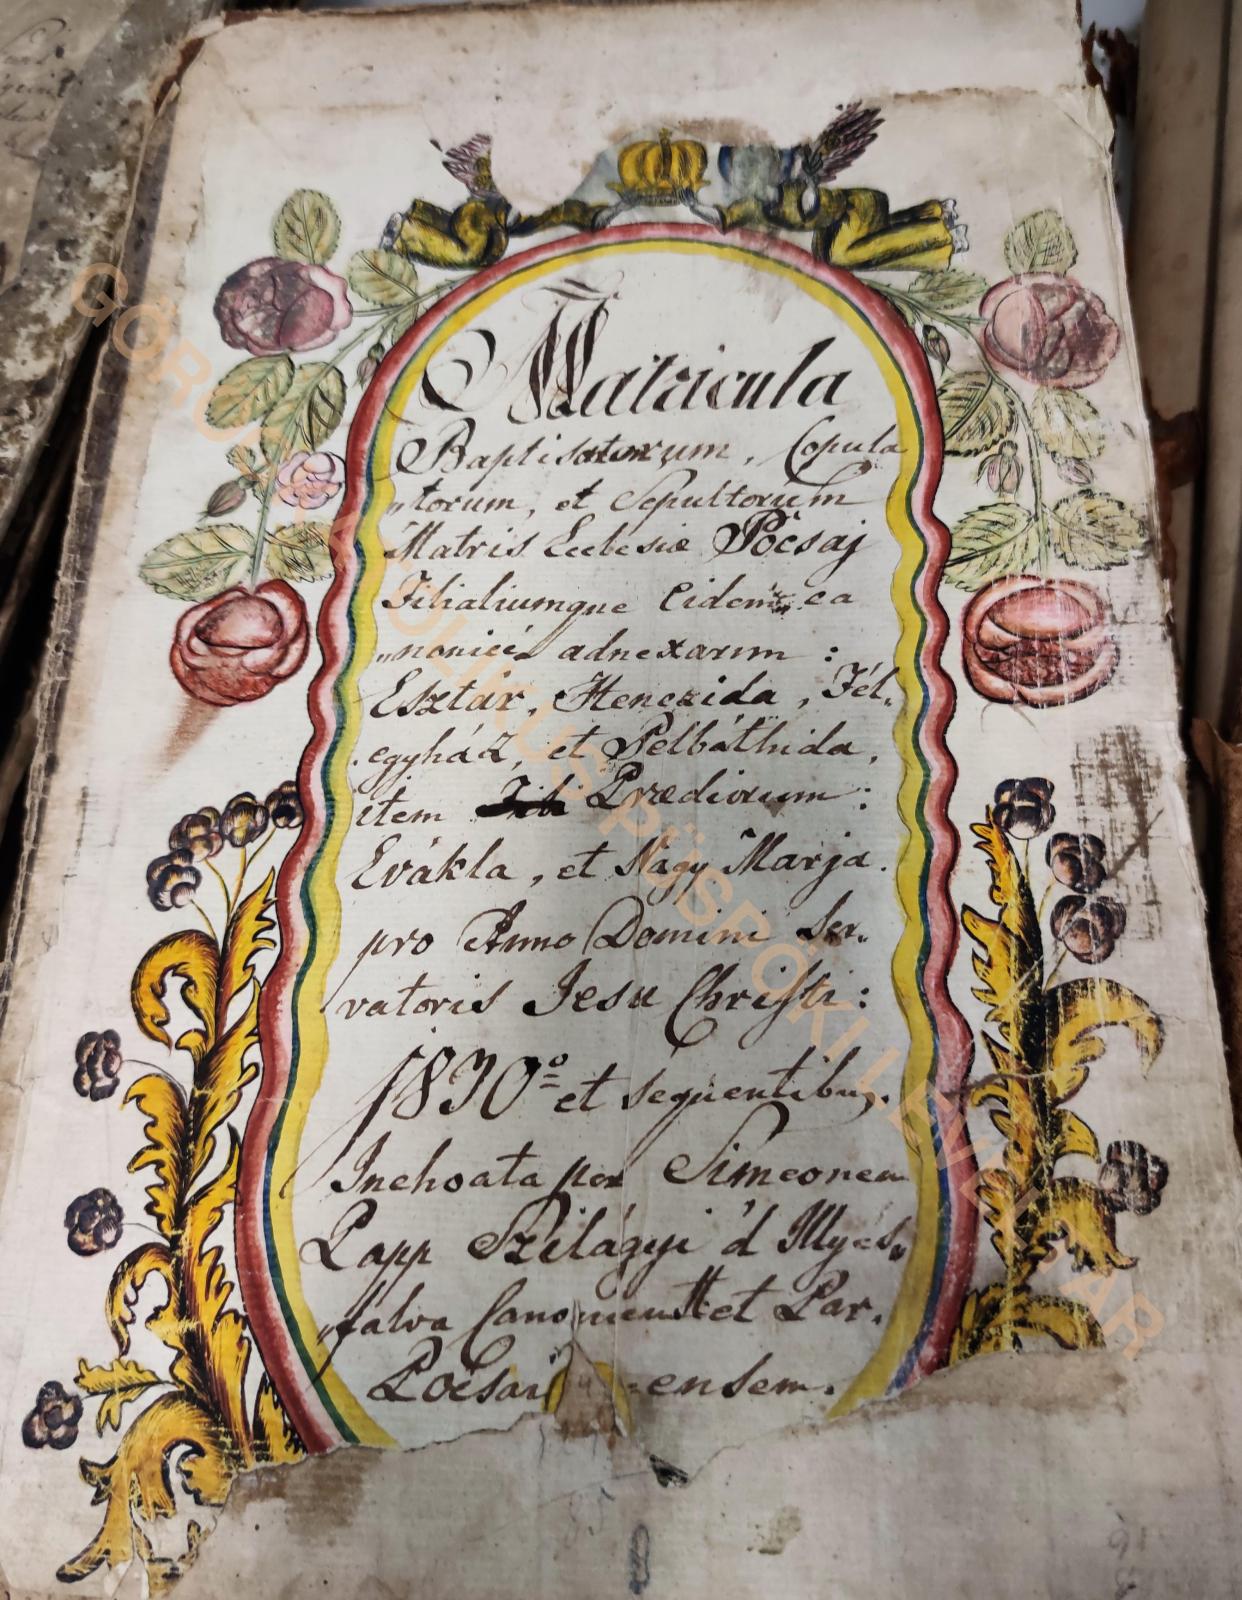 Matricula
Baptisatorum, Copula
„torum, et Sepultorum
Matris Ecclesiæ Pócsaj
Filialiumque Eidem ca
„nonicè adnexarum :
Esztár, Henczida, Fél„
egyház, et Pelbáthida,
item Prædiorum :
Evákla, et Nagy Marja.
pro Anno Domini Ser„
vatoris Jesu Christi :
1830º et sequentibus.
Inchoata per Simeonem
Papp Szilágyi d Illyés„
„falva Canonicum et Par.
Pócsaj ensem.
GÖRÖGKATOLIKUS PÜSPÖKI LEVÉLTÁR